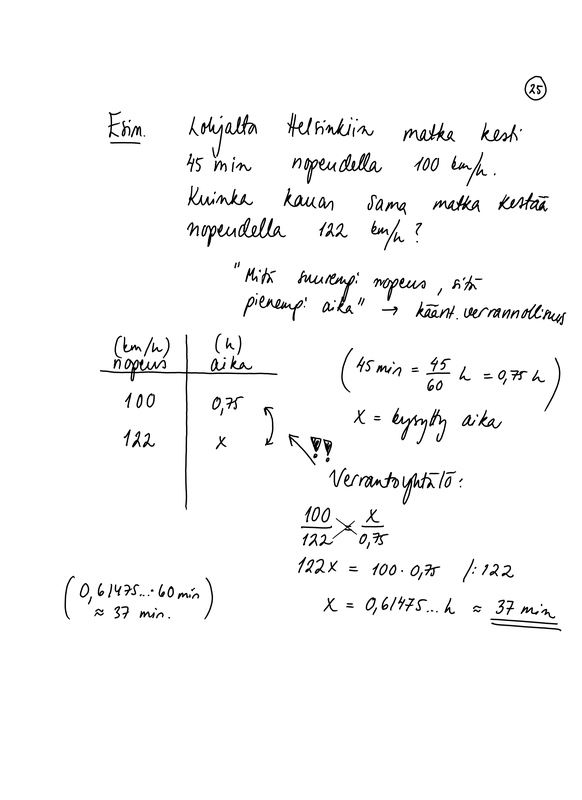 25
Esim. Lohjalta Helsinkiin matka kesti
45 min nopeudella 100 km/h.
Kuinka kauan sama matka kestää
nopeudella 122 km/h?
"Mitä suurempi nopeus, sitä
pienempi aika" → käänt. verrannollinus
(km/h) (h)
nopeus aika
100 0,75
122 x
!!
(45 min = 45/60 h = 0,75 h)
x = kysytty aika
Verrantoyhtälö:
100/122 = x/0,75
122x = 100 · 0,75 /:122
x = 0,61475... h ≈ 37 min
(0,61475...· 60 min
≈ 37 min.)